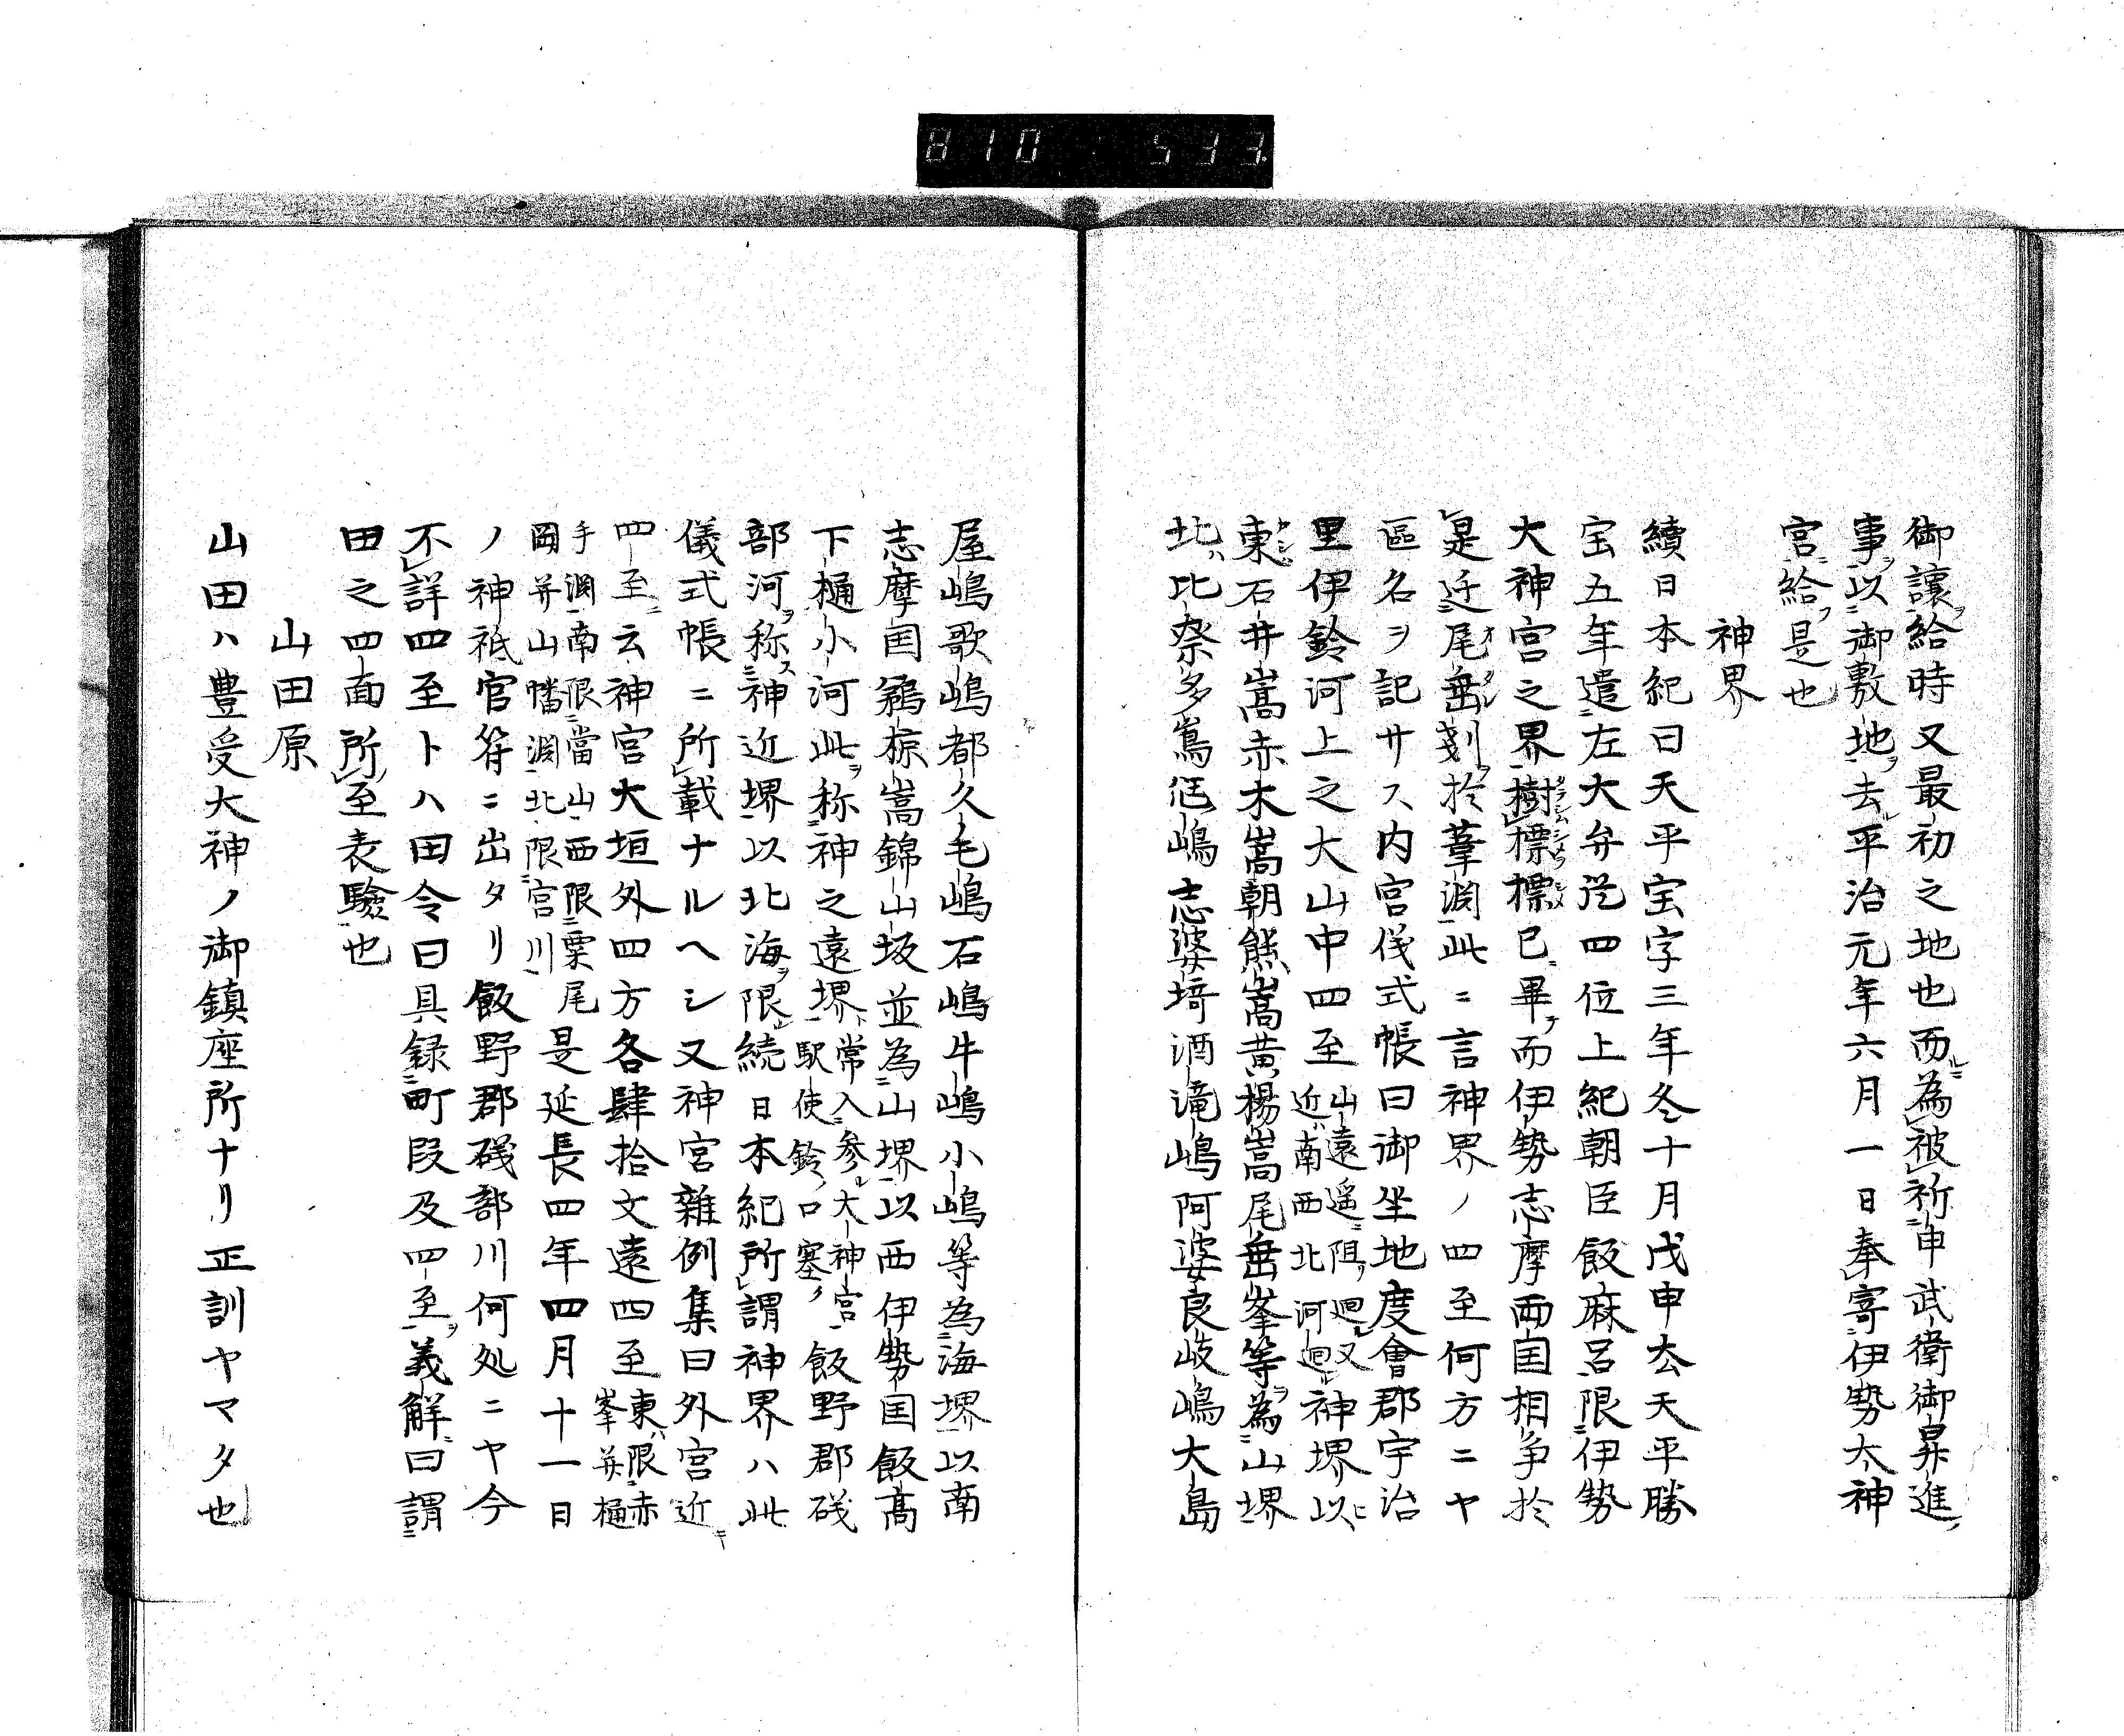 810 533
御譲ヲ給時又最初之地也而為レ被レ祈ニ申武衛御昇進ノ
事ヲ一以ニ御敷地ヲ一去ル平治元年六月一日奉レ寄ニ伊勢太神
宮ニ一給フ是也
神界
續日本紀曰天平宝字三年冬十月戊申去天平勝
宝五年遣ニ左大弁従四位上紀朝臣飯麻呂一限ニ伊勢
大神宮之界一樹レ標標已ニ畢テ而伊勢志摩両国相争於
レ是迁ニ尾垂剗ヲ於葦渕一此ニ言神界ノ四至何方ニヤ
區名ヲ記サス内宮儀式帳曰御坐地度會郡宇治
里伊鈴河上之大山中四至山遠遥ニ阻ノ廻レ又
近ハ南西北河廻レ神堺以
東石井嵩赤木嵩朝熊嵩黄楊嵩尾垂峯等ヲ為ニ山堺
北ハ比奈多嶌𠈓嶋志婆埼酒滝嶋阿婆良岐嶋大島
屋嶋歌嶋都久毛嶋石嶋牛嶋小嶋等為ニ海堺一以南
志摩国鵜椋嵩錦山坂並為ニ山堺一以西伊勢国飯髙
下樋小河此ヲ称ニ神之遠堺一ト常入ニ参レ大神宮一
駅使鈴ノ口塞ノ飯野郡礒
部河ヲ称ス神近堺一以北海ヲ限レ続日本紀所レ謂神界ハ此
儀式帳ニ所レ載ナルヘシ又神宮雜例集曰外宮近
四至ニ云神宮大垣外四方各肆拾丈遠四至東ハ限ニ赤
峯并樋
手渕一南限ニ當山一西限ニ粟尾
岡并山幡渕一北限ニ宮川一是延長四年四月十一日
ノ神祇官符ニ出タリ飯野郡礒部川何処ニヤ今
不レ詳四至トハ田令曰具録ニ町段及四至ヲ一義解ニ曰謂
田之四面所レ至表驗也
山田原
山田ハ豊受大神ノ御鎮座所ナリ正訓ヤマタ也